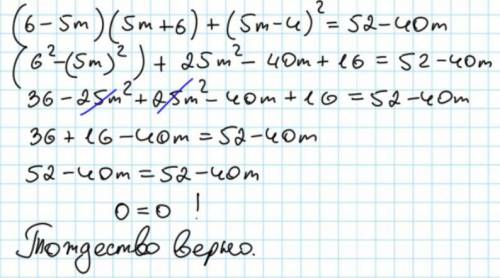 (6-5m)(5m+6)+(5m-4)²=52-40m
(6²-(5m)²)+25m²-40m+16=52-40m
36-25m²+25m²-40m+16=52-40m
36+16-40m=52-40m
52-40m=52-40m
0=0 !
Тождество верно.